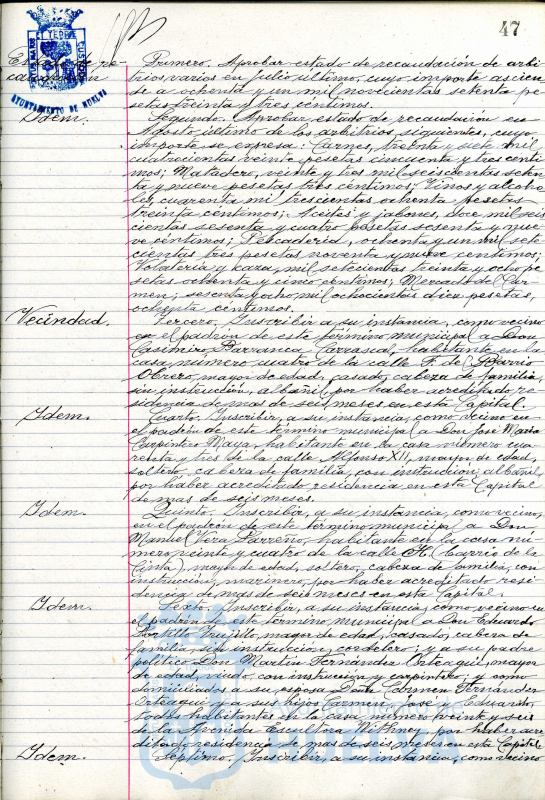 47
AYUNTAMIENTO DE HUELVA
Estado de re-
caudación
Primero. Aprobar estado de recaudación de arbi-
trios varios en Julio último, cuyo importe ascien-
de a ochenta y un mil novecientas setenta pe-
setas treinta y tres céntimos.
Idem.
Segundo. Aprobar estado de recaudación en
Agosto último de los arbitrios siguientes, cuyo
importe se expresa: Carnes, treinta y siete mil
cuatrocientas veinte pesetas cincuenta y tres cénti-
mos; Matadero, veinte y tres mil seiscientas seten-
ta y nueve pesetas tres céntimos; Vinos y alcoho-
les, cuarenta mil trescientas ochenta pesetas
treinta céntimos; Aceites y jabones, doce mil seis-
cientas sesenta y cuatro pesetas sesenta y nue-
ve céntimos; Pescadería, ochenta y un mil sete-
cientas tres pesetas noventa y nueve céntimos;
Volatería y caza, mil setecientas treinta y ocho pe-
setas ochenta y cinco céntimos; Mercado del Car-
men; sesenta y ocho mil ochocientas diez pesetas,
ochenta céntimos.
Vecindad.
Tercero. Inscribir a su instancia, como vecino
en el padrón de este término municipal a Don
Casimiro Barranca Carrascal, habitante en la
casa número cuatro de la calle F. de Barrio
Obrero, mayor de edad, casado, cabeza de familia,
sin instrucción, albañil, por haber acreditado re-
sidencia de mas de seis meses en esta Capital.
Idem.
Cuarto. Inscribir, a su instancia, como vecino en
el padrón de este término municipal a Don José María
Carpintero Maya, habitante en la casa número cua-
renta y tres de la calle Alfonso XII, mayor de edad,
soltero, cabeza de familia, con instrucción, albañil,
por haber acreditado residencia en esta Capital
de mas de seis meses.
Idem.
Quinto. Inscribir, a su instancia, como vecino,
en el padrón de este término municipal a Don
Manuel Vera Parreño, habitante en la casa nú-
mero veinte y cuatro de la calle H. (Barrio de la
Cinta), mayor de edad, soltero, cabeza de familia, con
instrucción, marinero, por haber acreditado resi-
dencia de mas de seis meses en esta Capital.
Idem.
Sexto. Inscribir, a su instancia, como vecino en
el padrón de este término municipal a Don Eduardo
Portillo Trujillo, mayor de edad, casado, cabeza de
familia, sin instrucción, cordelero; y a su padre
político Don Martín Fernández Orteagui, mayor
de edad, viudo, con instrucción y carpintero; y como
domiciliados a su esposa Doña Carmen Fernández
Orteagui y a sus hijos Carmen, José y Eduardo,
todos habitantes en la casa número veinte y seis
de la Avenida Escultora Withney por haber acre-
ditado residencia de mas de seis meses en esta Capital.
Idem.
Septimo. Inscribir, a su instancia, como vecino
Ayuntamiento de